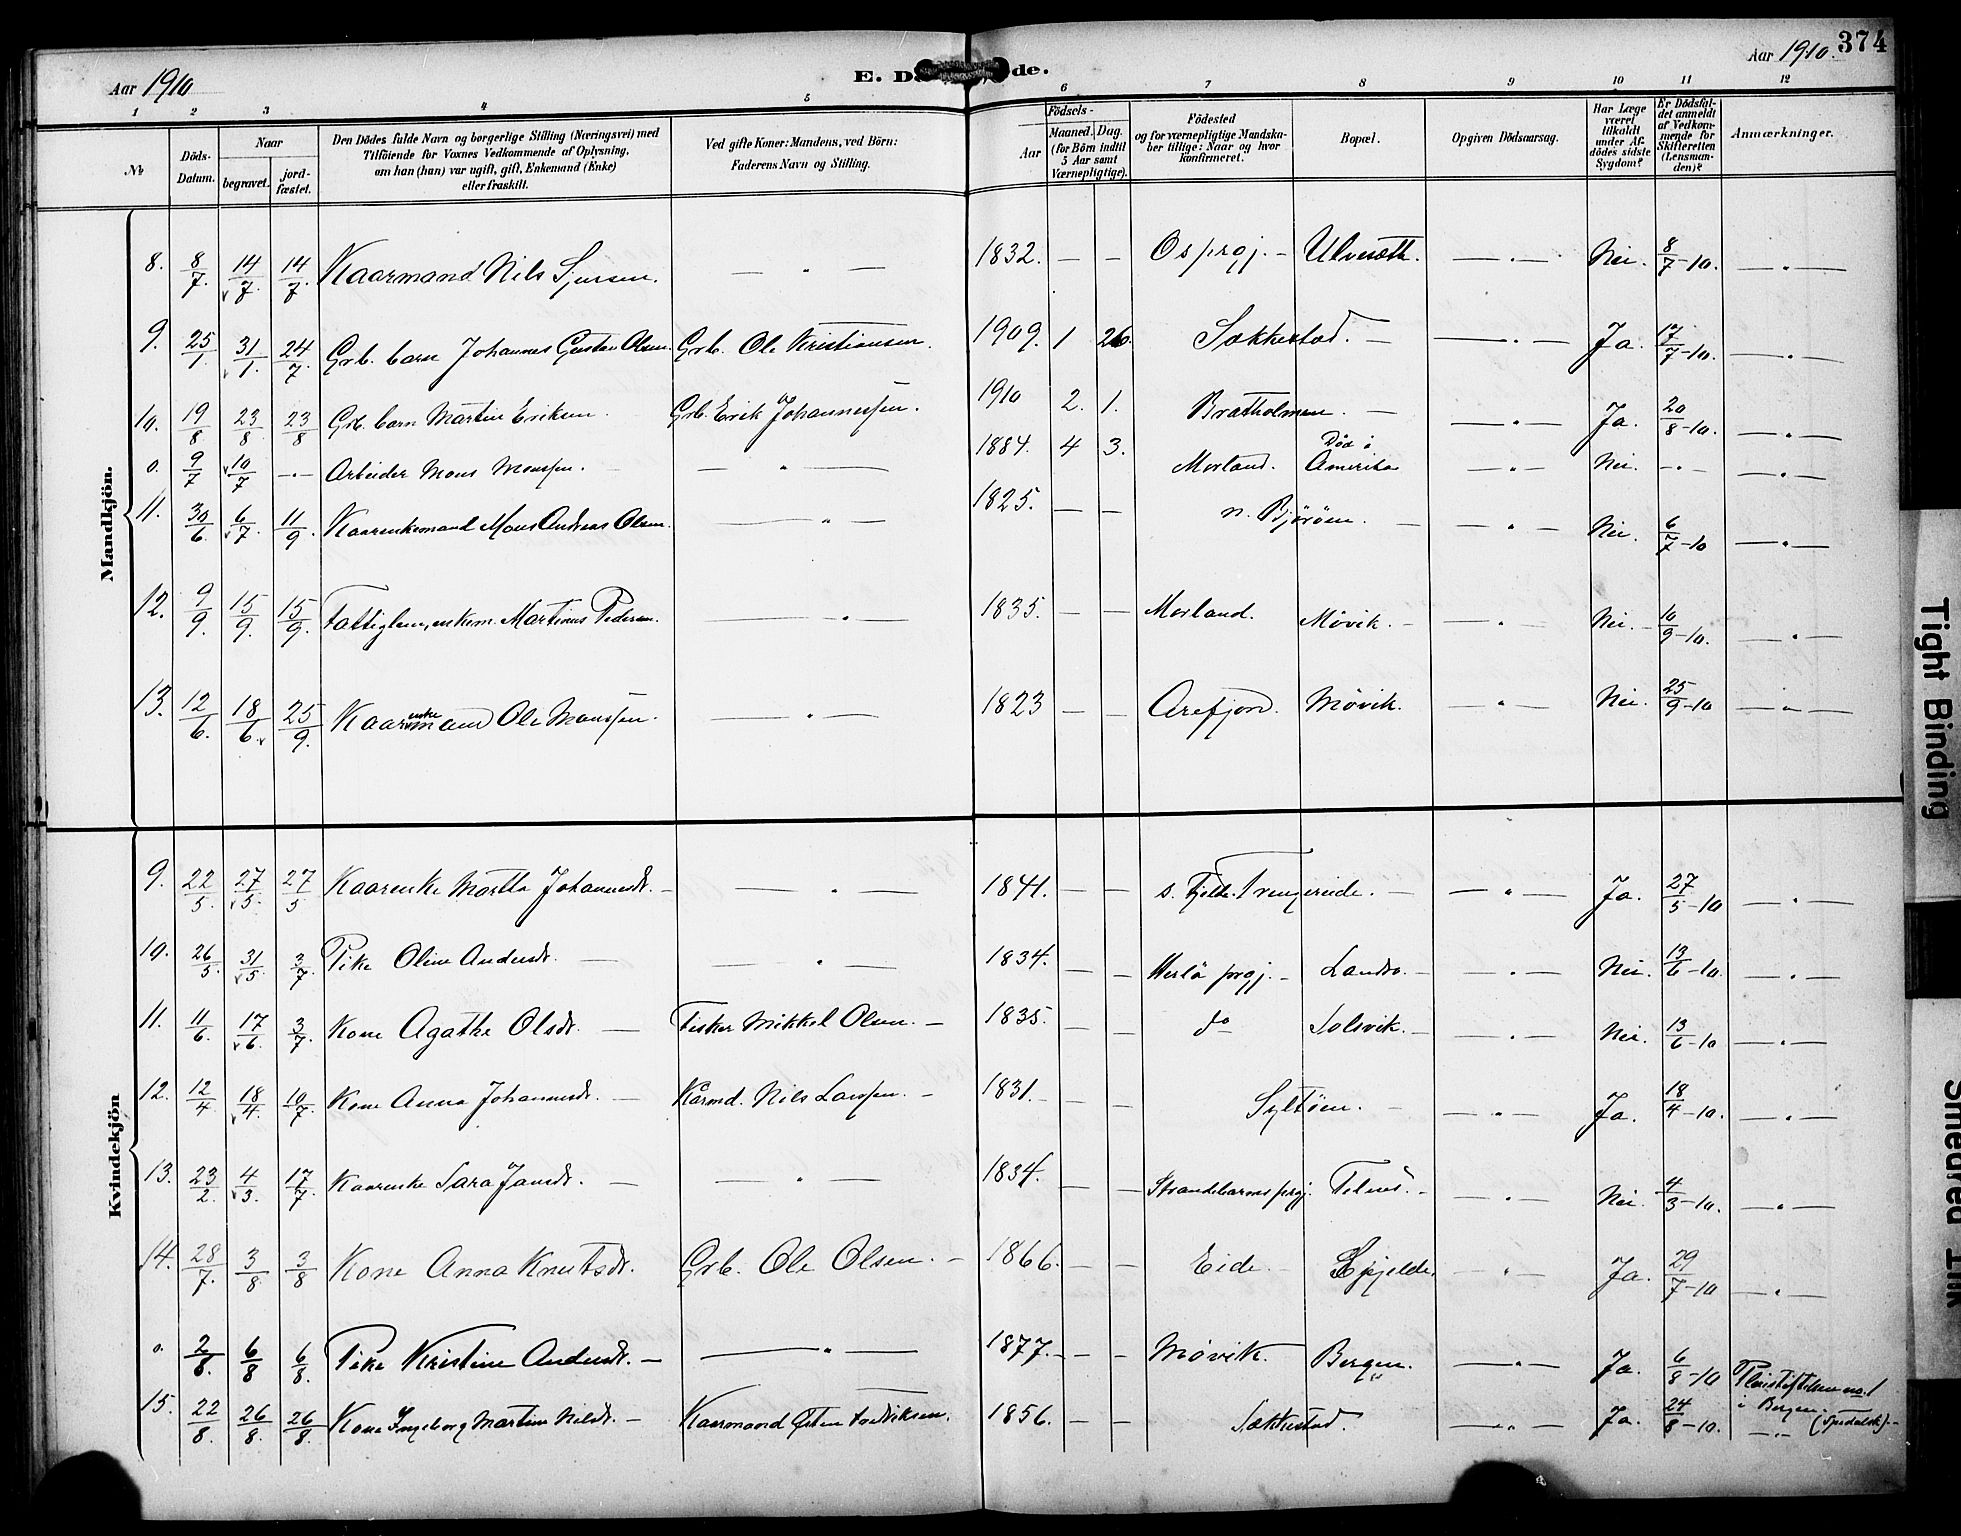 374
Aar 1910. E. D de. Aar 1910.
1 2 3 4 5 6 7 8 9 10 11 12
№ Döds-Datum. Naar begravet. jord-fæstet. Den Dödes fulde Navn og borgerlige Stilling (Næringsvei) med Tilföiende for Voxnes Vedkommende af Oplysning, om han (hun) var ugift, gift, Enkemand (Enke) eller fraskilt. Ved gifte Koner: Mandens, ved Börn: Faderens Navn og Stilling. Födsels- Aar Maaned. Dag. (for Börn indtil 5 Aar samt Værnepligtige). Födested og for værnepligtige Mandskaber tillige: Naar og hvor konfirmeret. Bopæl. Opgiven Dödsaarsag. Har Læge været tilkaldt under Afdödes sidste Sygdom? Er Dödsfaldet anmeldt af Vedkommende for Skifteretten (Lensmanden)? Anmærkninger.
Mandkjön.
8. 8/7. 14/7. 14/7. Kaarmand Nils Sjursen. — " — 1832. — — Os prgj. — Ulvesæth. — " — Nei. 8/7-10. — " —
9. 25/1. 31/1. 24/7 Grb. barn Johannes Gustav Olsen. Grb. Ole Kristiansen. 1909. 1 26. Sækkestad. — — " — Ja. 17/7-10. — " —
10. 19/8 23/8. 23/8 Grb. barn Martin Eriksen. Grb. Erik Johannessen. 1910 2. 1. Bratholmen. — — " — Ja. 20/8-10. — " —
0. 9/7 10/7 — " — Arbeider Mons Monssen. — " — 1884. 4 3. Morland. Död i Amerika — " — Nei. — " — — " —
11. 30/6. 6/7. 11/9. Kaarenkemand Mons Andreas Olsen. — " — 1825. — — n. Bjørøen. — — " — Nei. 6/7-10 — " —
12. 9/9. 15/9. 15/9. Fattiglem, enkem. Martinus Pedersen. — " — 1835. — — Morland. Møvik. — — " — Nei. — 10/9-10. — " —
13. 12/6. 18/6. 25/9. Kaarenkemand Ole Monssen. — " — 1823 — — Arefjord. Møvik. — " — Nei. 25/9-10 — " —
Kvindekjön
9. 22/5. 27/5. 27/5 Kaarenke Martha Johannesdt. — — " — 1841. — — s. Fjelde. Trengereide. — — " — Ja. 27/5-10 — " —
10. 26/5. 31/5. 3/7. Pike Oline Andersdt. — — " — 1834. — — Herlö prgj. — Landro. — — " — Nei. 13/6-10. — " —
11. 11/6. 17/6. 3/7. Kone Agathe Olsdt. — Fisker Mikkel Olsen. — 1835. — — do Solsvik. — — " — Nei. 13/6-10 — " —
12. 12/4. 18/4. 10/7. Kone Anna Johannesdt. — Kårmd. Nils Larssen. — 1831. — — Syltøen. — — " — Ja. 18/4-10. — " —
13. 23/2. 4/3. 17/7. Kaarenke Sara Jansdt. — — " — 1834. — — Strandebarms prgj. Telnes. — — " — Nei. 4/3-10. — " —
14. 28/7. 3/8 3/8 Kone Anna Knutsdt. Grb. Ole Olsen. — 1866. — — Eide. Spjelde. — " — Ja. 29/7-10 — " —
0. 2/8. 6/8 6/8. Pike Kristine Andersdt. — — " — 1877. — — Møvik. Bergen. — " — Ja. 6/8-10 Pleiestiftelsen no. 1 i Bergen. (Spedalsk). —
15. 22/8. 26/8. 26/8. Kone Ingeborg Martine Nilsdt. — Kaarmand Østen Fredriksen. 1856. — — Sækkestad. — " — Ja. 24/8-10. — " —
Tight Binding
Smeared Ink